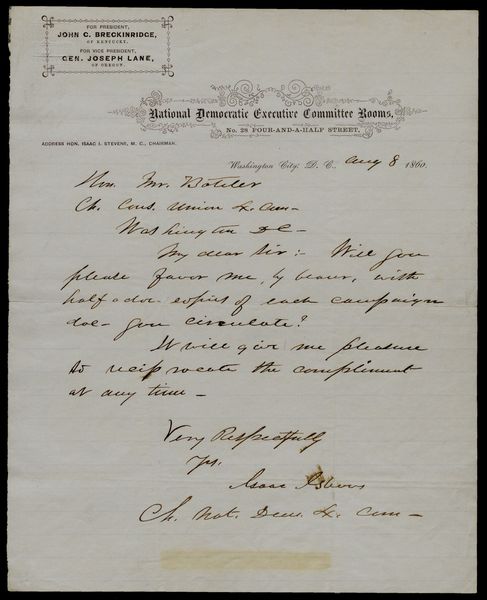 FOR PRESIDENT,
JOHN C. BRECKINRIDGE,
OF KENTUCKY.
FOR VICE PRESIDENT,
GEN. JOSEPH LANE,
OF OREGON.
National Democratic Executive Committee Rooms,
No. 28 FOUR-AND-A-HALF STREET,
ADDRESS HON. ISAAC I. STEVENS, M. C., CHAIRMAN.
Washington City, D. C., Aug 8 1860.
Hon. Mr. Boteler
Ch. Cons. Union Ex. Com-
Washington DC-
My dear Sir:- Will you
please favor me, by bearer, with
half a doz- copies of each campaign
doc- you circulate?
It will give me pleasure
to reciprocate the compliment
at any time-
Very Respectfully
Yrs.
Isaac I. Stevens
Ch. Nat. Dem. Ex. Com-